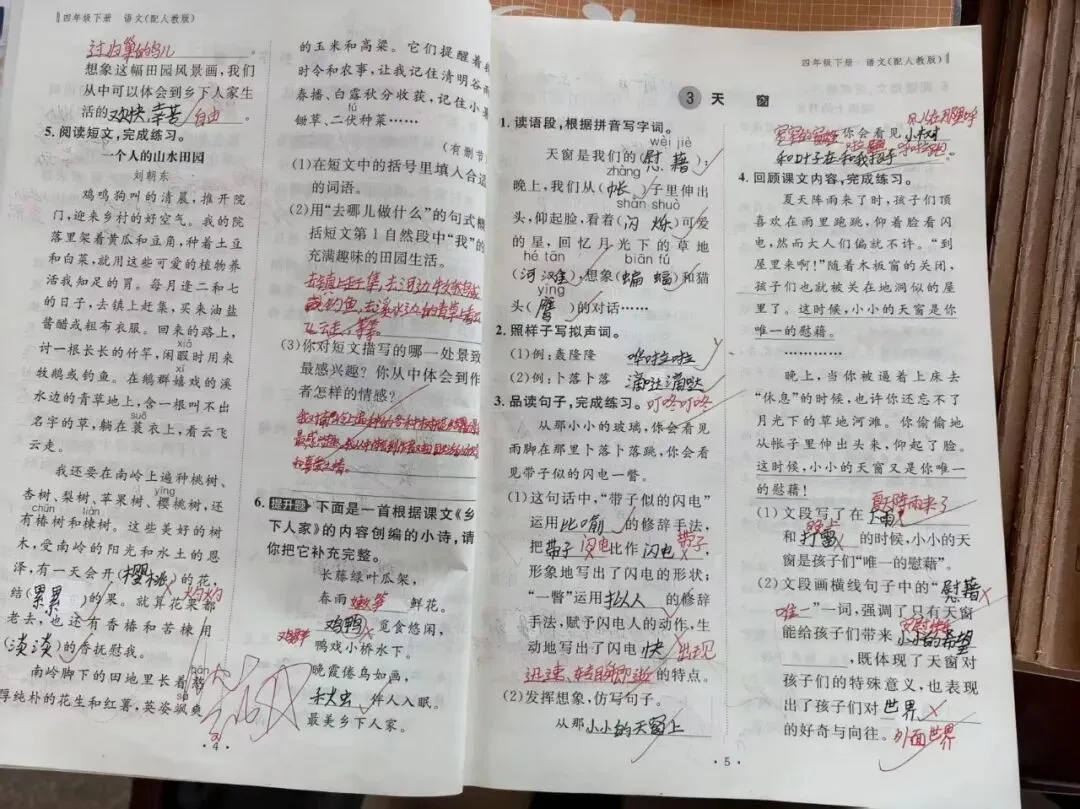 四年级下册 语文(配人教版)
过归巢的鸟儿。
想象这幅田园风景画,我们
从中可以体会到乡下人家生
活的欢快、幸苦、自由。
5. 阅读短文,完成练习。
一个人的山水田园
刘朝东
鸡鸣狗叫的清晨,推开院
门,迎来乡村的好空气。我的院
落里架着黄瓜和豆角,种着土豆
和白菜,就用这些可爱的植物养
活我知足的胃。每月逢二和七
的日子,去镇上赶集,买来油盐
酱醋或粗布衣服。回来的路上,
xiá
讨一根长长的竹竿,闲暇时用来
牧鹅或钓鱼。在鹅群嬉戏的溪
水边的青草地上,含一根叫不出
suō
名字的草,躺在蓑衣上,看云飞
云走。
我还要在南岭上遍种桃树、
yīng
杏树、梨树、苹果树、樱桃树,还
chūn liàn
有椿树和楝树。这些美好的树
木,受南岭的阳光和水土的恩
泽,有一天会开(樱桃)的花,
灼灼
结(累累)的果。就算花果都
老去,也还有香椿和苦楝用
(淡淡)的香抚慰我。
南岭脚下的田地里长着
厚纯朴的花生和红薯,英姿飒爽
sà
· 4 ·
的玉米和高粱。它们提醒着
时令和农事,让我记住清明谷雨
春播、白露秋分收获,记住小暑
fú
锄草、二伏种菜……
(有删节)
(1)在短文中的括号里填入合适
的词语。
(2)用“去哪儿做什么”的句式概
括短文第1自然段中“我”的
充满趣味的田园生活。
去镇上赶集,去河边
(3)你对短文描写的哪一处景致
最感兴趣?你从中体会到作
者怎样的情感?
6. 提升题 下面是一首根据课文《乡
下人家》的内容创编的小诗,请
你把它补充完整。
长藤绿叶瓜架,
春雨 嫩笋 鲜花。
鸡鸭 觅食悠闲,
鸭戏小桥水下。
晚霞倦鸟如画,
伴人入眠。
最美乡下人家。
四年级下册 语文(配人教版)
3 天 窗
1. 读语段,根据拼音写字词。
wèi jiè
天窗是我们的(慰藉);
zhàng
晚上,我们从(帐)子里伸出
shǎn shuò
头,仰起脸,看着(闪烁)可爱
的星,回忆月光下的草地
hé tān biān fú
(河滩),想象(蝙蝠)和猫
yīng
头(鹰)的对话……
2. 照样子写拟声词。
(1)例:轰隆隆 哗啦啦
(2)例:卜落卜落 滴哒滴哒
叮咚叮咚
3. 品读句子,完成练习。
从那小小的玻璃,你会看见
雨脚在那里卜落卜落跳,你会看
见带子似的闪电一瞥。
(1)这句话中,“带子似的闪电”
运用比喻的修辞手法,
把带子 闪电比作闪电 带子,
形象地写出了闪电的形状;
“一瞥”运用拟人的修辞
手法,赋予闪电人的动作,生
动地写出了闪电快 出现
迅速、转瞬即逝的特点。
(2)发挥想象,仿写句子。
从那小小的天窗上
· 5 ·
你会看见小树
和叶子在和我招手。
4. 回顾课文内容,完成练习。
夏天阵雨来了时,孩子们顶
喜欢在雨里跑跳,仰着脸看闪
电,然而大人们偏就不许。“到
屋里来啊!”随着木板窗的关闭,
孩子们也就被关在地洞似的屋
里了。这时候,小小的天窗是你
唯一的慰藉。
…………
晚上,当你被逼着上床去
“休息”的时候,也许你还忘不了
月光下的草地河滩。你偷偷地
从帐子里伸出头来,仰起了脸。
这时候,小小的天窗又是你唯一
的慰藉!
夏天阵雨来了
(1)文段写了在大雨
晚上
和打雷的时候,小小的天
窗是孩子们“唯一的慰藉”。
(2)文段画横线句子中的“慰藉
唯一”一词,强调了只有天窗
能给孩子们带来小小的希望
,既体现了天窗对
孩子们的特殊意义,也表现
出了孩子们对世界
的好奇与向往。外面世界